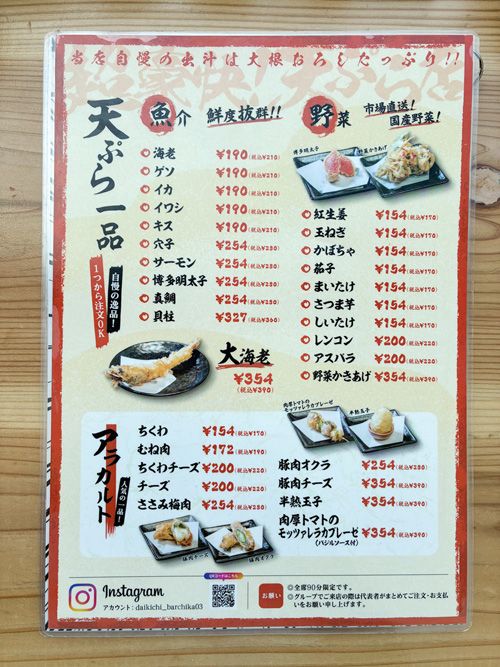 当店自慢の出汁は大根おろしたっぷり!!
天ぷら一品
自慢の逸品!
1つから注文OK
魚介 鮮度抜群!!
海老 ¥190(税込¥210)
ゲソ ¥190(税込¥210)
イカ ¥190(税込¥210)
イワシ ¥190(税込¥210)
キス ¥190(税込¥210)
穴子 ¥254(税込¥280)
サーモン ¥254(税込¥280)
博多明太子 ¥254(税込¥280)
真鯛 ¥254(税込¥280)
貝柱 ¥327(税込¥360)
大海老
¥354
(税込¥390)
野菜 市場直送!
国産野菜!
博多明太子
野菜かきあげ
紅生姜 ¥154(税込¥170)
玉ねぎ ¥154(税込¥170)
かぼちゃ ¥154(税込¥170)
茄子 ¥154(税込¥170)
まいたけ ¥154(税込¥170)
さつま芋 ¥154(税込¥170)
しいたけ ¥154(税込¥170)
レンコン ¥200(税込¥220)
アスパラ ¥200(税込¥220)
野菜かきあげ ¥354(税込¥390)
アラカルト
人気の一品!
ちくわ ¥154(税込¥170)
むね肉 ¥172(税込¥190)
ちくわチーズ ¥200(税込¥220)
チーズ ¥200(税込¥220)
ささみ梅肉 ¥254(税込¥280)
豚肉チーズ
豚肉オクラ
肉厚トマトの
モッツァレラカプレーゼ
半熟玉子
豚肉オクラ ¥254(税込¥280)
豚肉チーズ ¥354(税込¥390)
半熟玉子 ¥354(税込¥390)
肉厚トマトの
モッツァレラカプレーゼ ¥354(税込¥390)
(バジルソース付)
Instagram
アカウント:daikichi_barchika03
QRコードはこちら
お願い
◎全席90分限定です。
◎グループでご来店の際は代表者がまとめてご注文・お支払
いをお願い申し上げます。